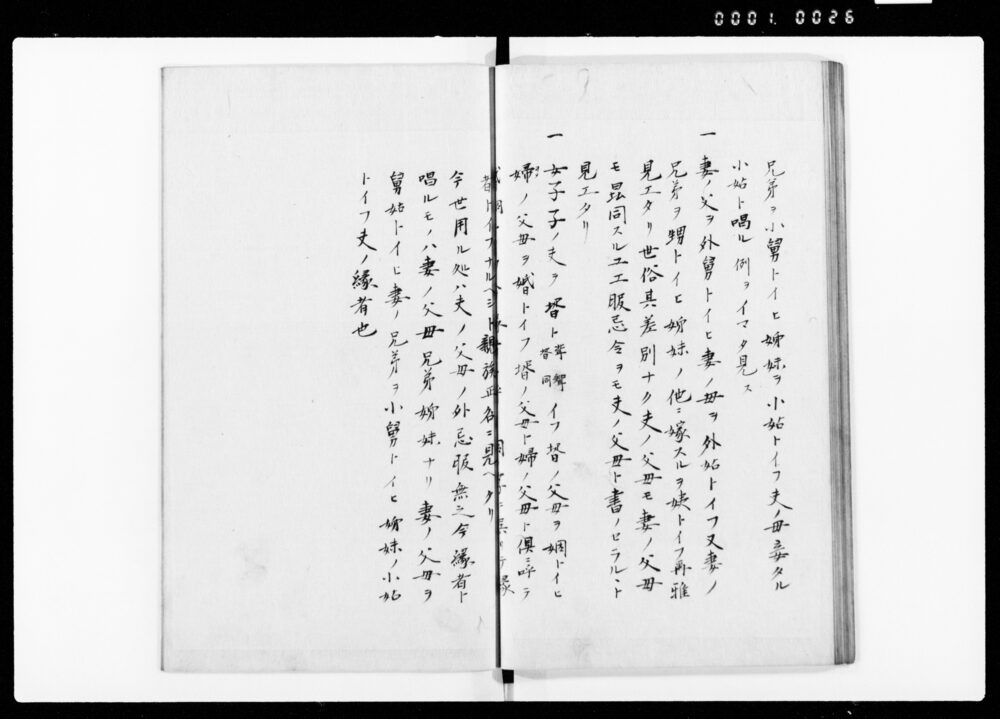 0001.0026
兄弟ヲ小舅トイヒ姉妹ヲ小姑トイフ夫ノ母妾タル
小姑ト唱ル例ヲイマタ見ス
一 妻ノ父ヲ外舅トイヒ妻ノ母ヲ外姑トイフ又妻ノ
兄弟ヲ甥トイヒ姉妹ノ他ニ嫁スルヲ姨トイフ再雅
見エタリ世俗其差別ナク夫ノ父母モ妻ノ父母
モ混同スルユエ服忌令ヲモ夫ノ父母ト書ノセラルヽト
見エタリ
一 女子子ノ夫ヲ壻ト イフ壻ノ父母ヲ姻トイヒ
婦ノ父母ヲ婚トイフ壻ノ父母ト婦ノ父母ト倶ニ呼テ
トイフナルヘシト親族正名ニ見ヘタリ
今世用ル処ハ夫ノ父母ノ外忌服無之今縁者ト
唱ルモノハ妻ノ父母兄弟姉妹ナリ妻ノ父母ヲ
舅姑トイヒ妻ノ兄弟ヲ小舅トイヒ姉妹ノ小姑
トイフ夫ノ縁者也